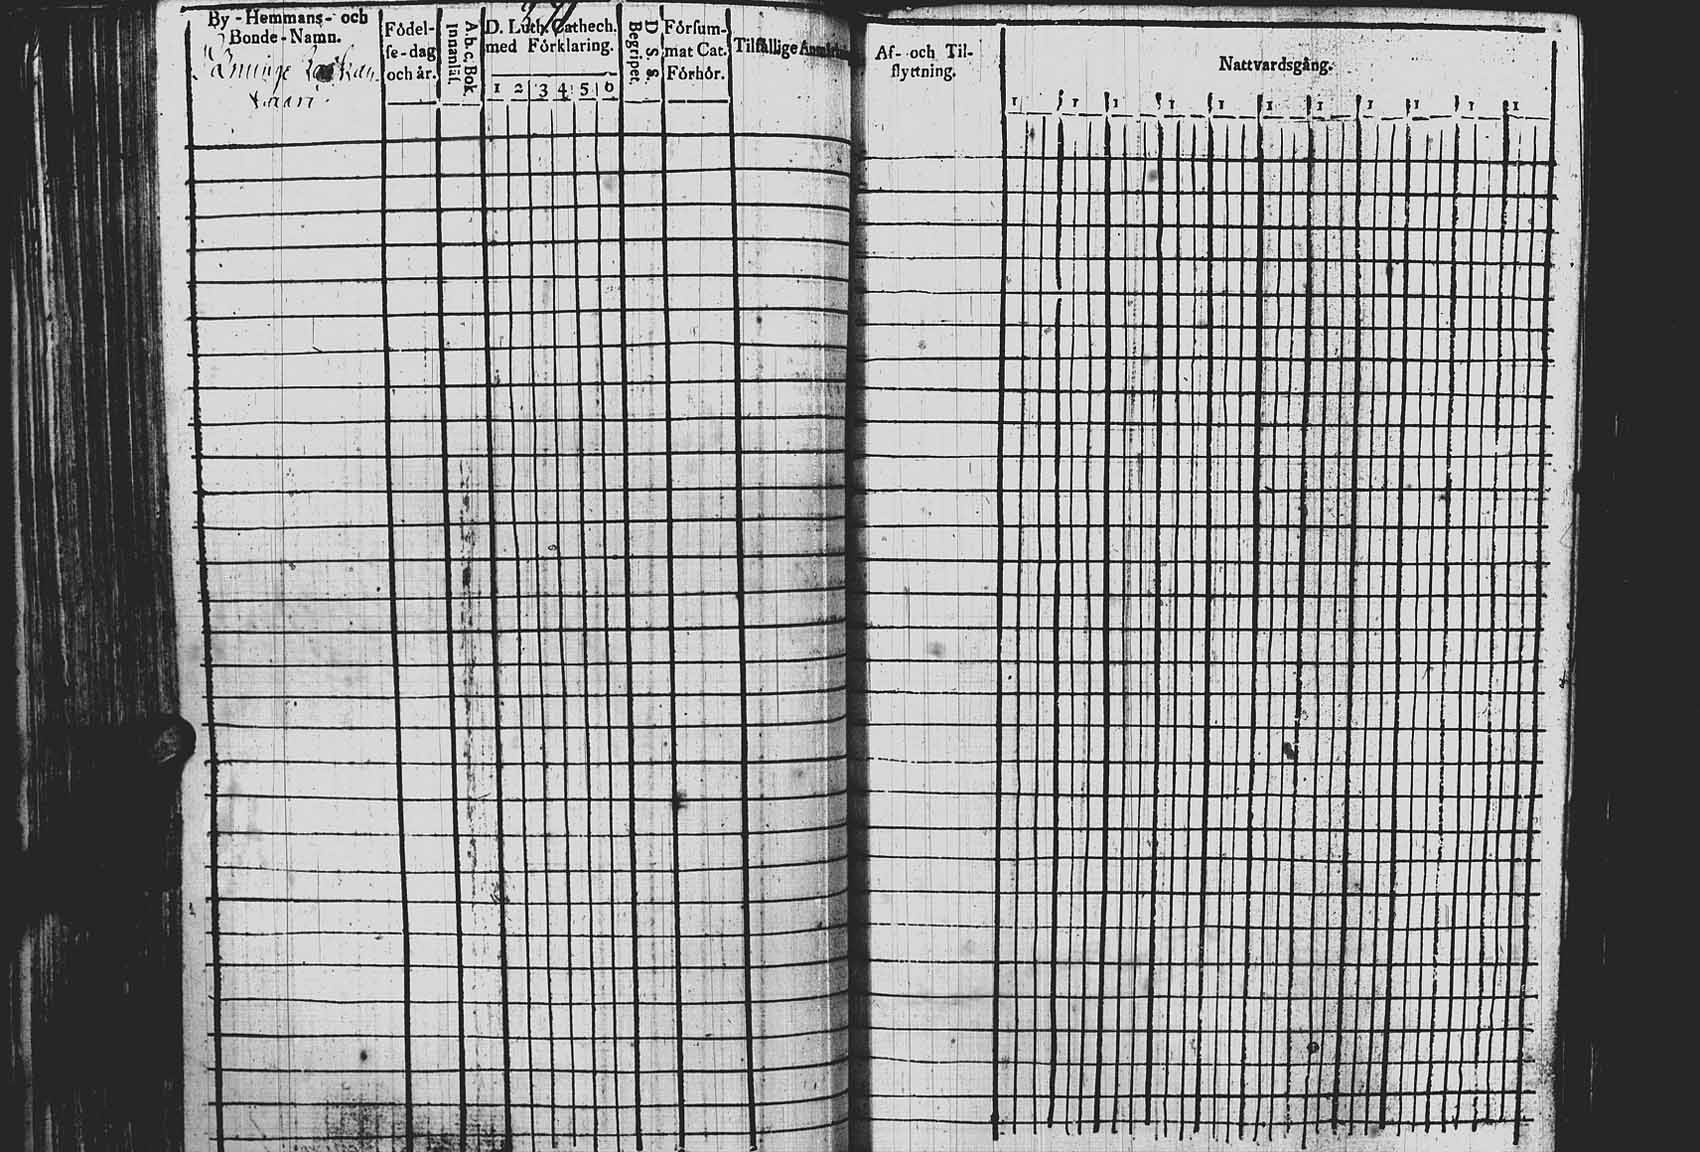 By - Hemmans - och
Bonde - Namn.
Födel-
se - dag
och år.
A.b.c. Bok
Innanläs.
D. Luth. Cathech.
med Förklaring.
1 2 3 4 5 6
D. S. S.
Begripet.
Försum-
mat Cat.
Förhör.
Tilfällige
Af- och Til-
flyttning.
Nattvardsgång.
1 1 1 1 1 1 1 1 1 1 1